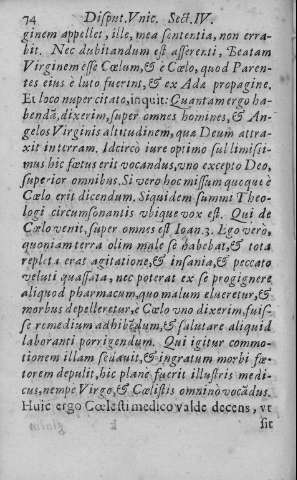 74 Disput. Vnic. Sect. IV.
ginem appellet, ille, mea sententia, non erra-
bit. Nec dubitandum est asserenti, Beatam
Virginem esse Cœlum, & è Cœlo, quod Paren-
tes eius è luto fuerint, & ex Ada propagine.
Et loco nuper citato, inquit: Quantam ergo ha-
bendã, dixerim, super omnes homines, & An-
gelos Virginis altitudinem, qua Deum attra-
xit in terram. Idcircò iure optimo sublimissi-
mus hic fœtus erit vocandus, vno excepto Deo,
superior omnibus. Si vero hoc missum quoque è
Cœlo erit dicendum. Siquidem summi Theo-
logi circumsonantis vbique vox est. Qui de
Cœlo venit, super omnes est Ioan. 3. Ego verò,
quoniam terra olim male se habebat, & tota
repleta eras agitatione, & insania, & peccato
veluti quassata, nec poterat ex se progignere
aliquod pharmacum, quo malum elueretur, &
morbus depelleretur, è Cœlo vno dixerim, fuis-
se remedium adhibẽdum, & salutare aliquid
laboranti porrigendum. Qui igitur commo-
tionem illam sedauit, & ingratum morbi fœ-
torem depulit, hic planè fuerit illustris medi-
cus, nempe Virgo, & Cœlistis omnino vocãdus.
Huic ergo Cœlesti medico valde decens, vt
sit